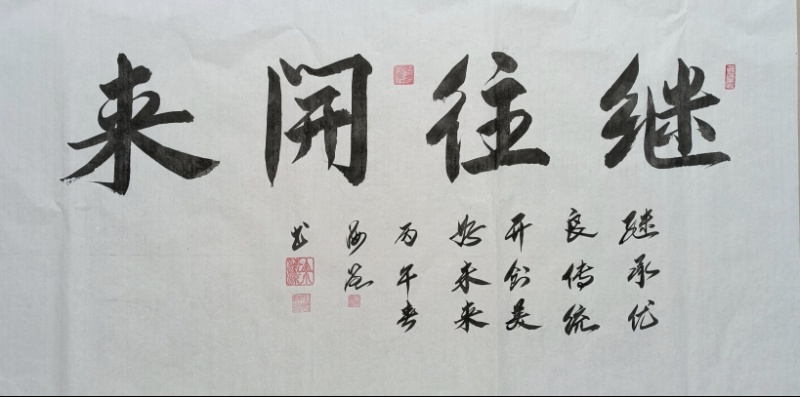 继往開来
继承优
良传统
开创美
好未来
丙午春
书